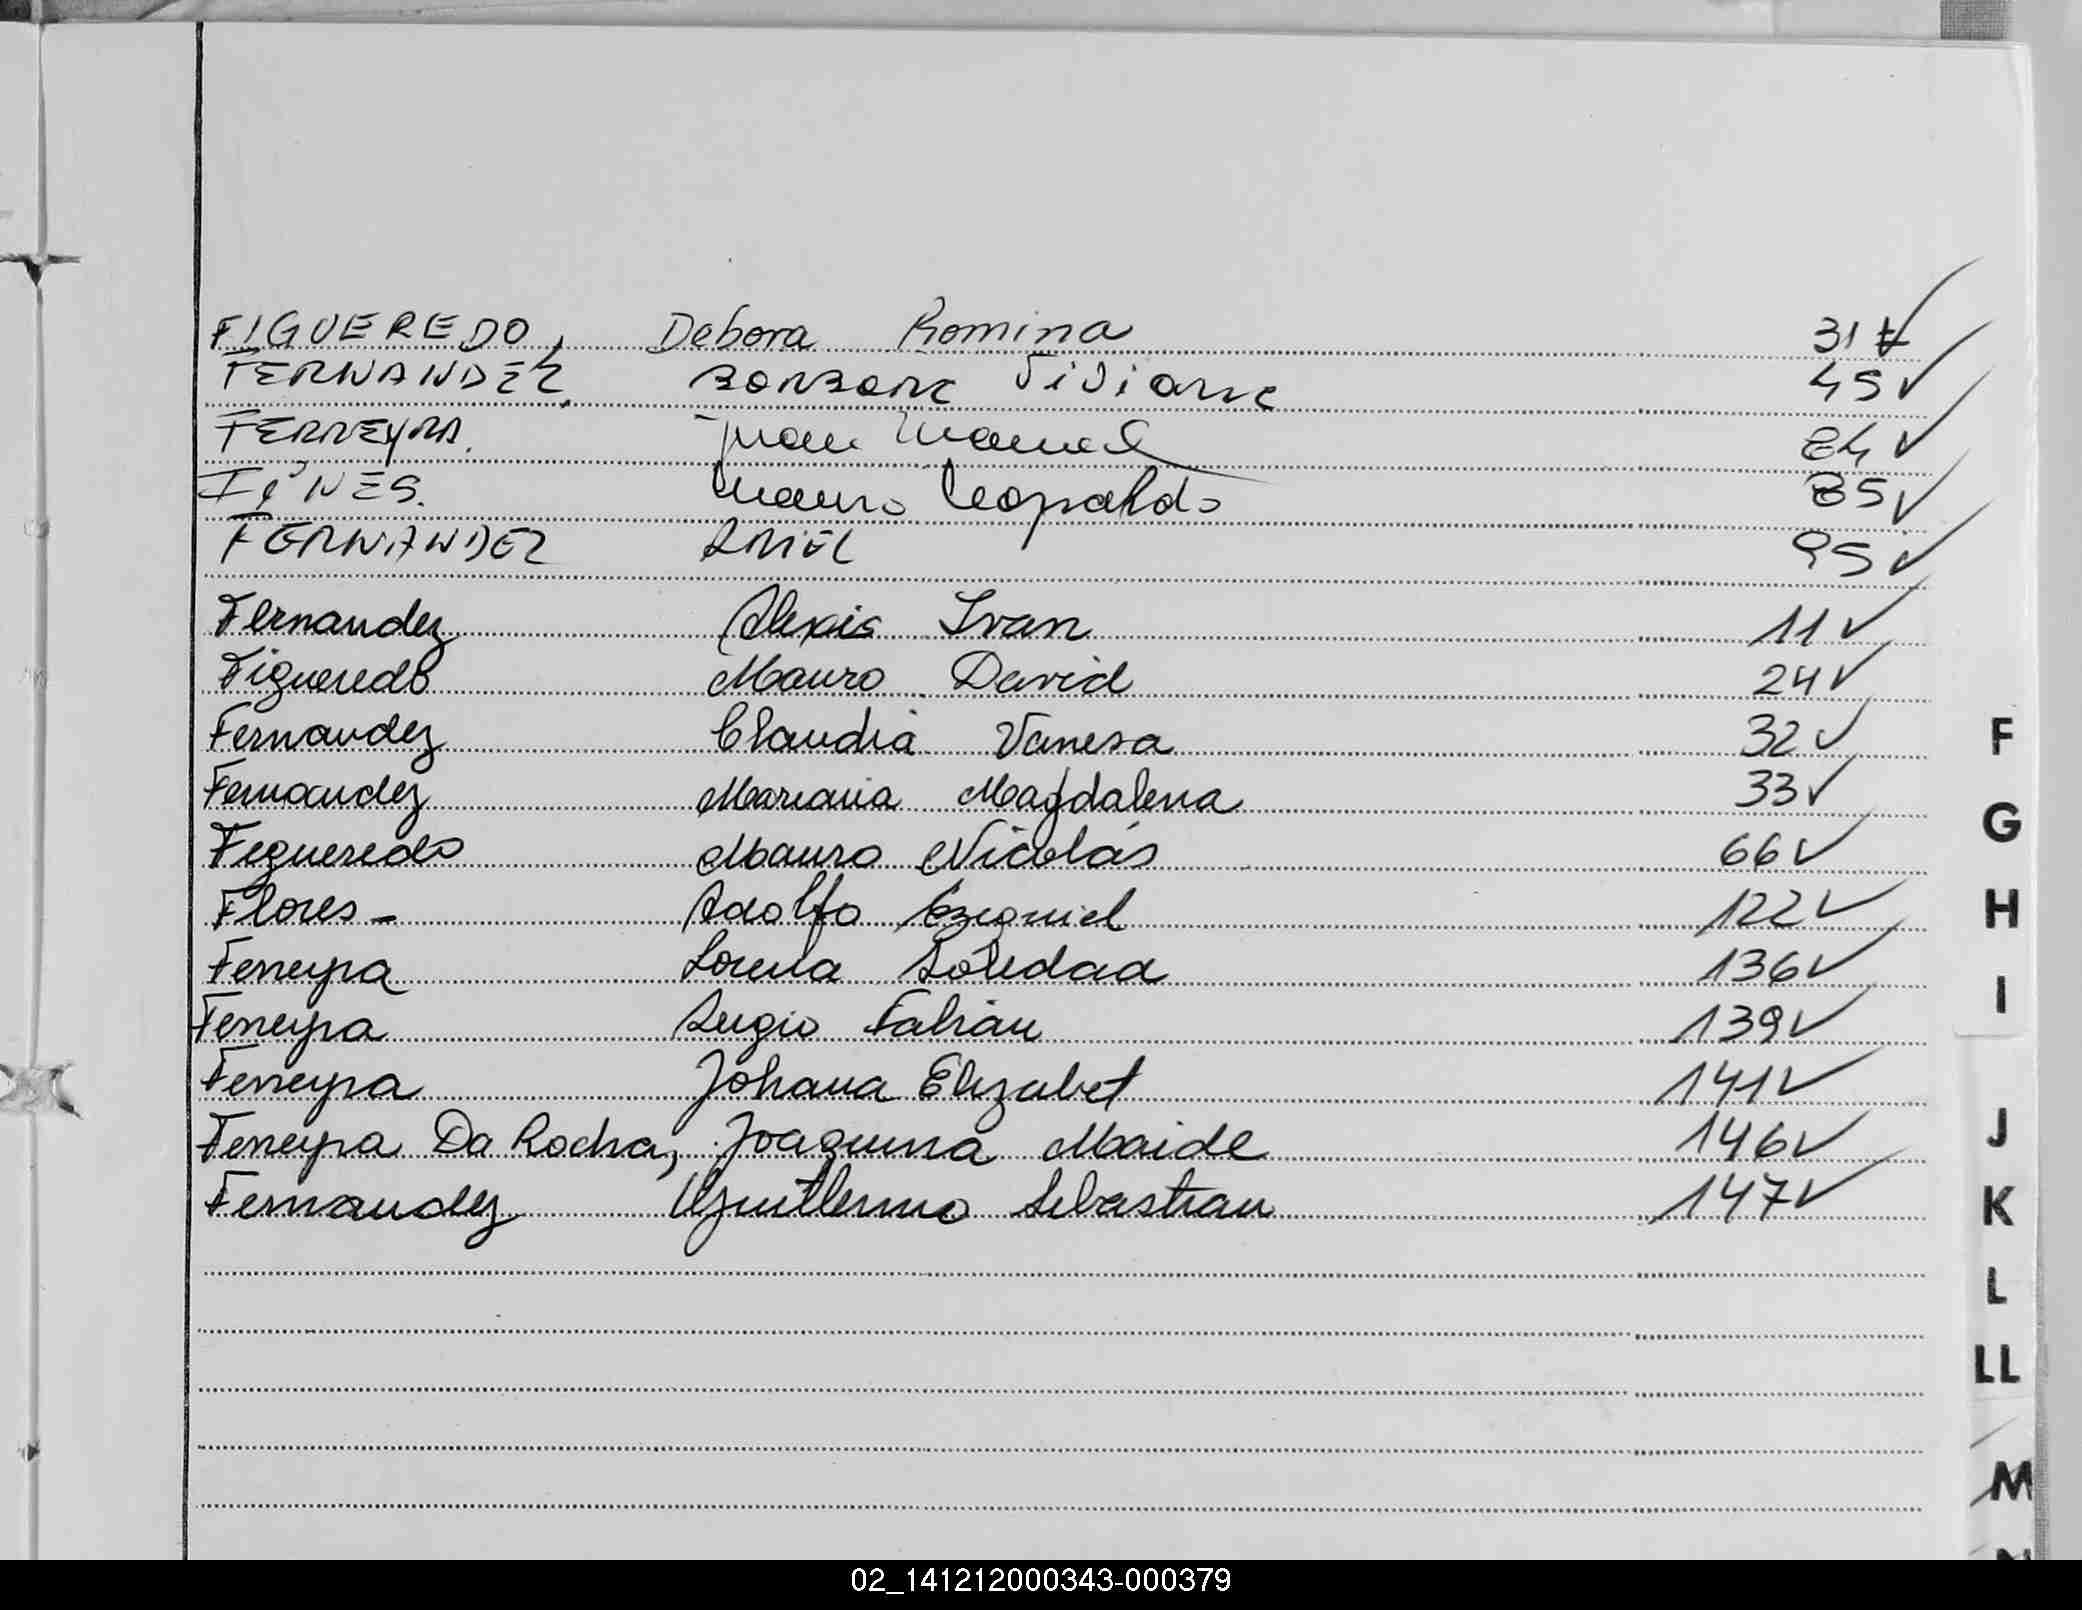 FIGUEREDO, Debora Romina 31 ✓
FERNANDEZ. BARBARA ViViana 45 ✓
FERREYRA. Juan Manuel 84 ✓
Mauro Leopoldo 85 ✓
FERNANDEZ ARIEL 95 ✓
Fernandez Alexis Ivan 11 ✓
Figueredo Mauro David 24 ✓
Fernandez Claudia Vanesa 32 ✓
Fernandez Mariana Magdalena 33 ✓
Figueredo Mauro Nicolás 66 ✓
Flores - Adolfo Ezequiel 122 ✓
Ferreyra Lorena Soledad 136 ✓
Ferreyra Sergio Fabian 139 ✓
Ferreyra Johana Elizabet 141 ✓
Ferreyra Da Rocha, Joaquina Maide 146 ✓
Fernandez Guillermo Sebastian 147 ✓
F
G
H
I
J
K
L
LL
M
N
02_141212000343-000379